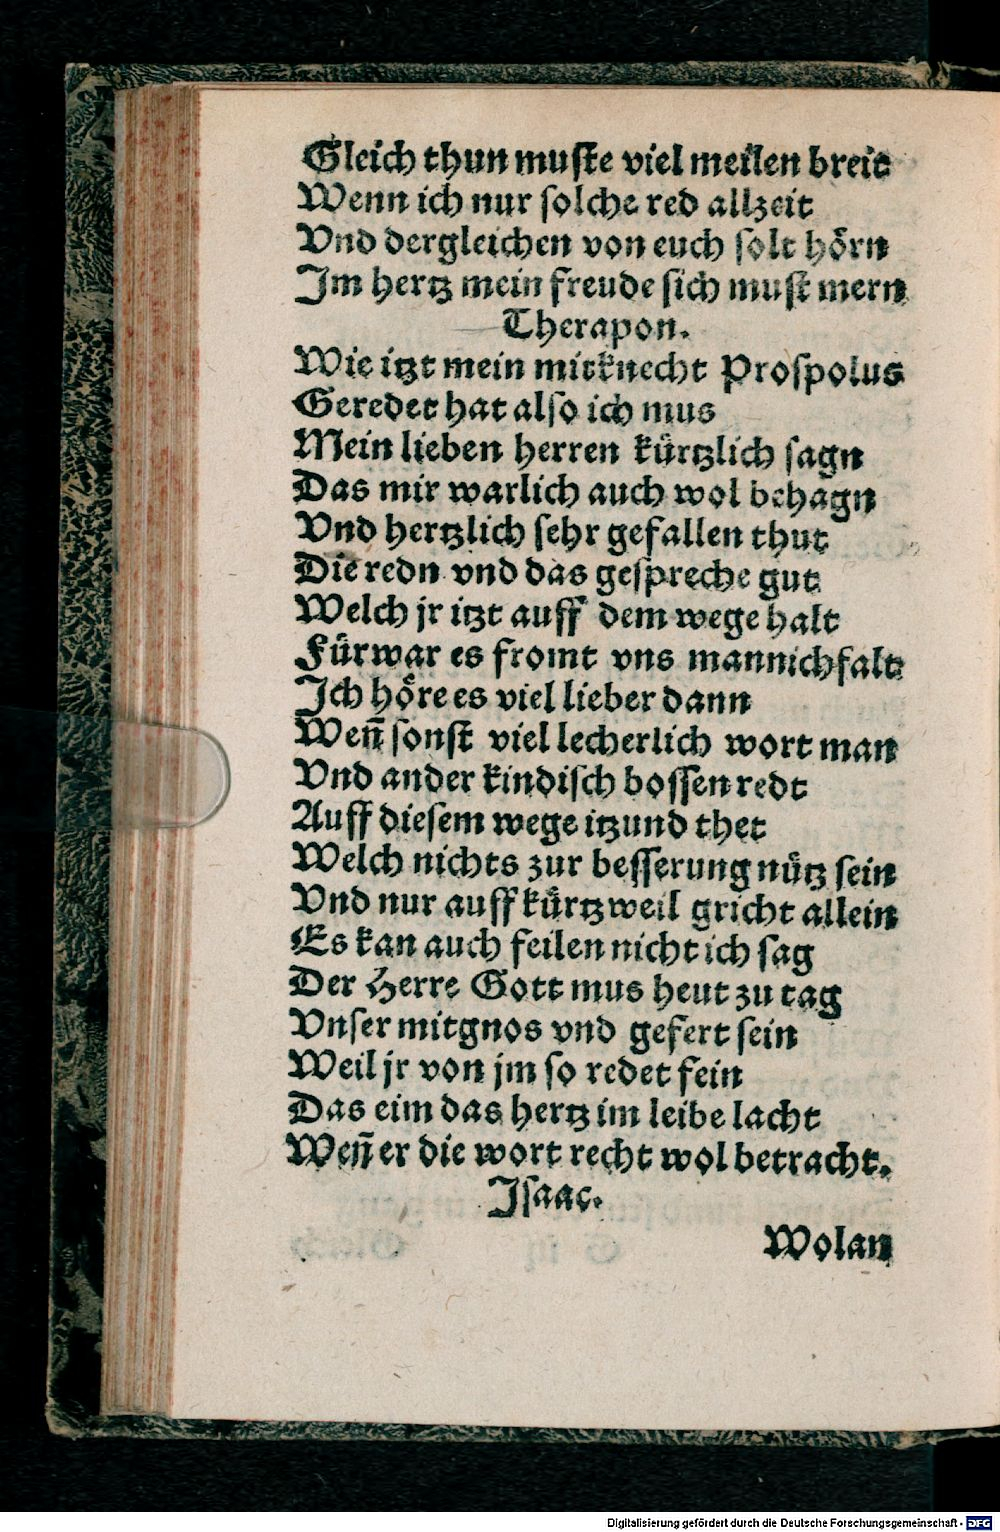 Gleich thun muſte viel meilen breit
Wenn ich nur ſolche red allzeit
Vnd dergleichen von euch ſolt hörn
Im hertz mein freude ſich muſt mern
Therapon.
Wie itzt mein mitknecht Proſpolus
Geredet hat alſo ich mus
Mein lieben herren kürtzlich ſagn
Das mir warlich auch wol behagn
Vnd hertzlich ſehr gefallen thut
Die redn vnd das geſpreche gut
Welch jr itzt auff dem wege halt
Fürwar es fromt vns mannichfalt
Ich höre es viel lieber dann
Weñ ſonſt viel lecherlich wort man
Vnd ander kindiſch boſſen redt
Auff dieſem wege itzund thet
Welch nichts zur beſſerung nütz ſein
Vnd nur auff kürtzweil gricht allein
Es kan auch feilen nicht ich ſag
Der Herre Gott mus heut zu tag
Vnſer mitgnos vnd gefert ſein
Weil jr von jm ſo redet fein
Das eim das hertz im leibe lacht
Weñ er die wort recht wol betracht.
Iſaac.
Wolan
Digitalisierung gefördert durch die Deutsche Forschungsgemeinschaft - DFG